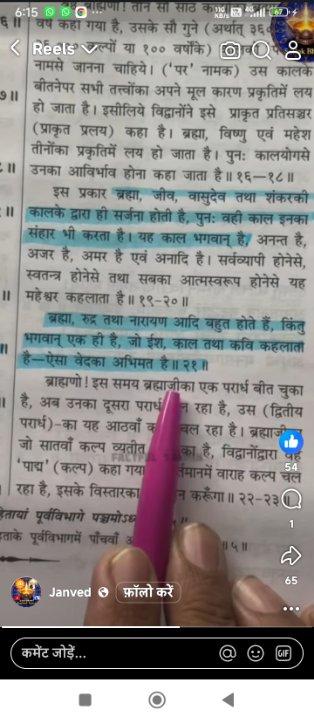 6:15
4G
67
Reels
वर्ष कहा गया है, उसके सौ गुने (अर्थात् ३६०
नामसे जानना चाहिये। ('पर' नामक) उस कालके
बीतनेपर सभी तत्त्वोंका अपने मूल कारण प्रकृतिमें लय
हो जाता है। इसीलिये विद्वानोंने इसे प्राकृत प्रतिसञ्चर
(प्राकृत प्रलय) कहा है। ब्रह्मा, विष्णु एवं महेश
तीनोंका प्रकृतिमें लय हो जाता है। पुनः कालयोगसे
उनका आविर्भाव होना कहा जाता है॥ १६—१८॥
इस प्रकार ब्रह्मा, जीव, वासुदेव तथा शंकरकी
कालके द्वारा ही सर्जना होती है, पुनः वही काल इनका
संहार भी करता है। यह काल भगवान् है, अनन्त है,
अजर है, अमर है एवं अनादि है। सर्वव्यापी होनेसे,
स्वतन्त्र होनेसे तथा सबका आत्मस्वरूप होनेसे यह
महेश्वर कहलाता है॥ १९-२०॥
ब्रह्मा, रुद्र तथा नारायण आदि बहुत होते हैं, किंतु
भगवान् एक ही है, जो ईश, काल तथा कवि कहलाता
है—ऐसा वेदका अभिमत है॥ २१॥
ब्राह्मणो! इस समय ब्रह्माजीका एक परार्ध बीत चुका
है, अब उनका दूसरा परार्ध चल रहा है, उस (द्वितीय
परार्ध)-का यह आठवाँ चल रहा है। ब्रह्माजी
जो सातवाँ कल्प व्यतीत है, विद्वानोंद्वारा वह
'पाद्म' (कल्प) कहा गया वाराह कल्प चल
रहा है, इसके विस्तारका करूँगा॥ २२-२३॥
पूर्वविभागे
पूर्वविभागमें पाँचवाँ ॥ ५॥
54
1
65
Janved
फ़ॉलो करें
कमेंट जोड़ें...
GIF